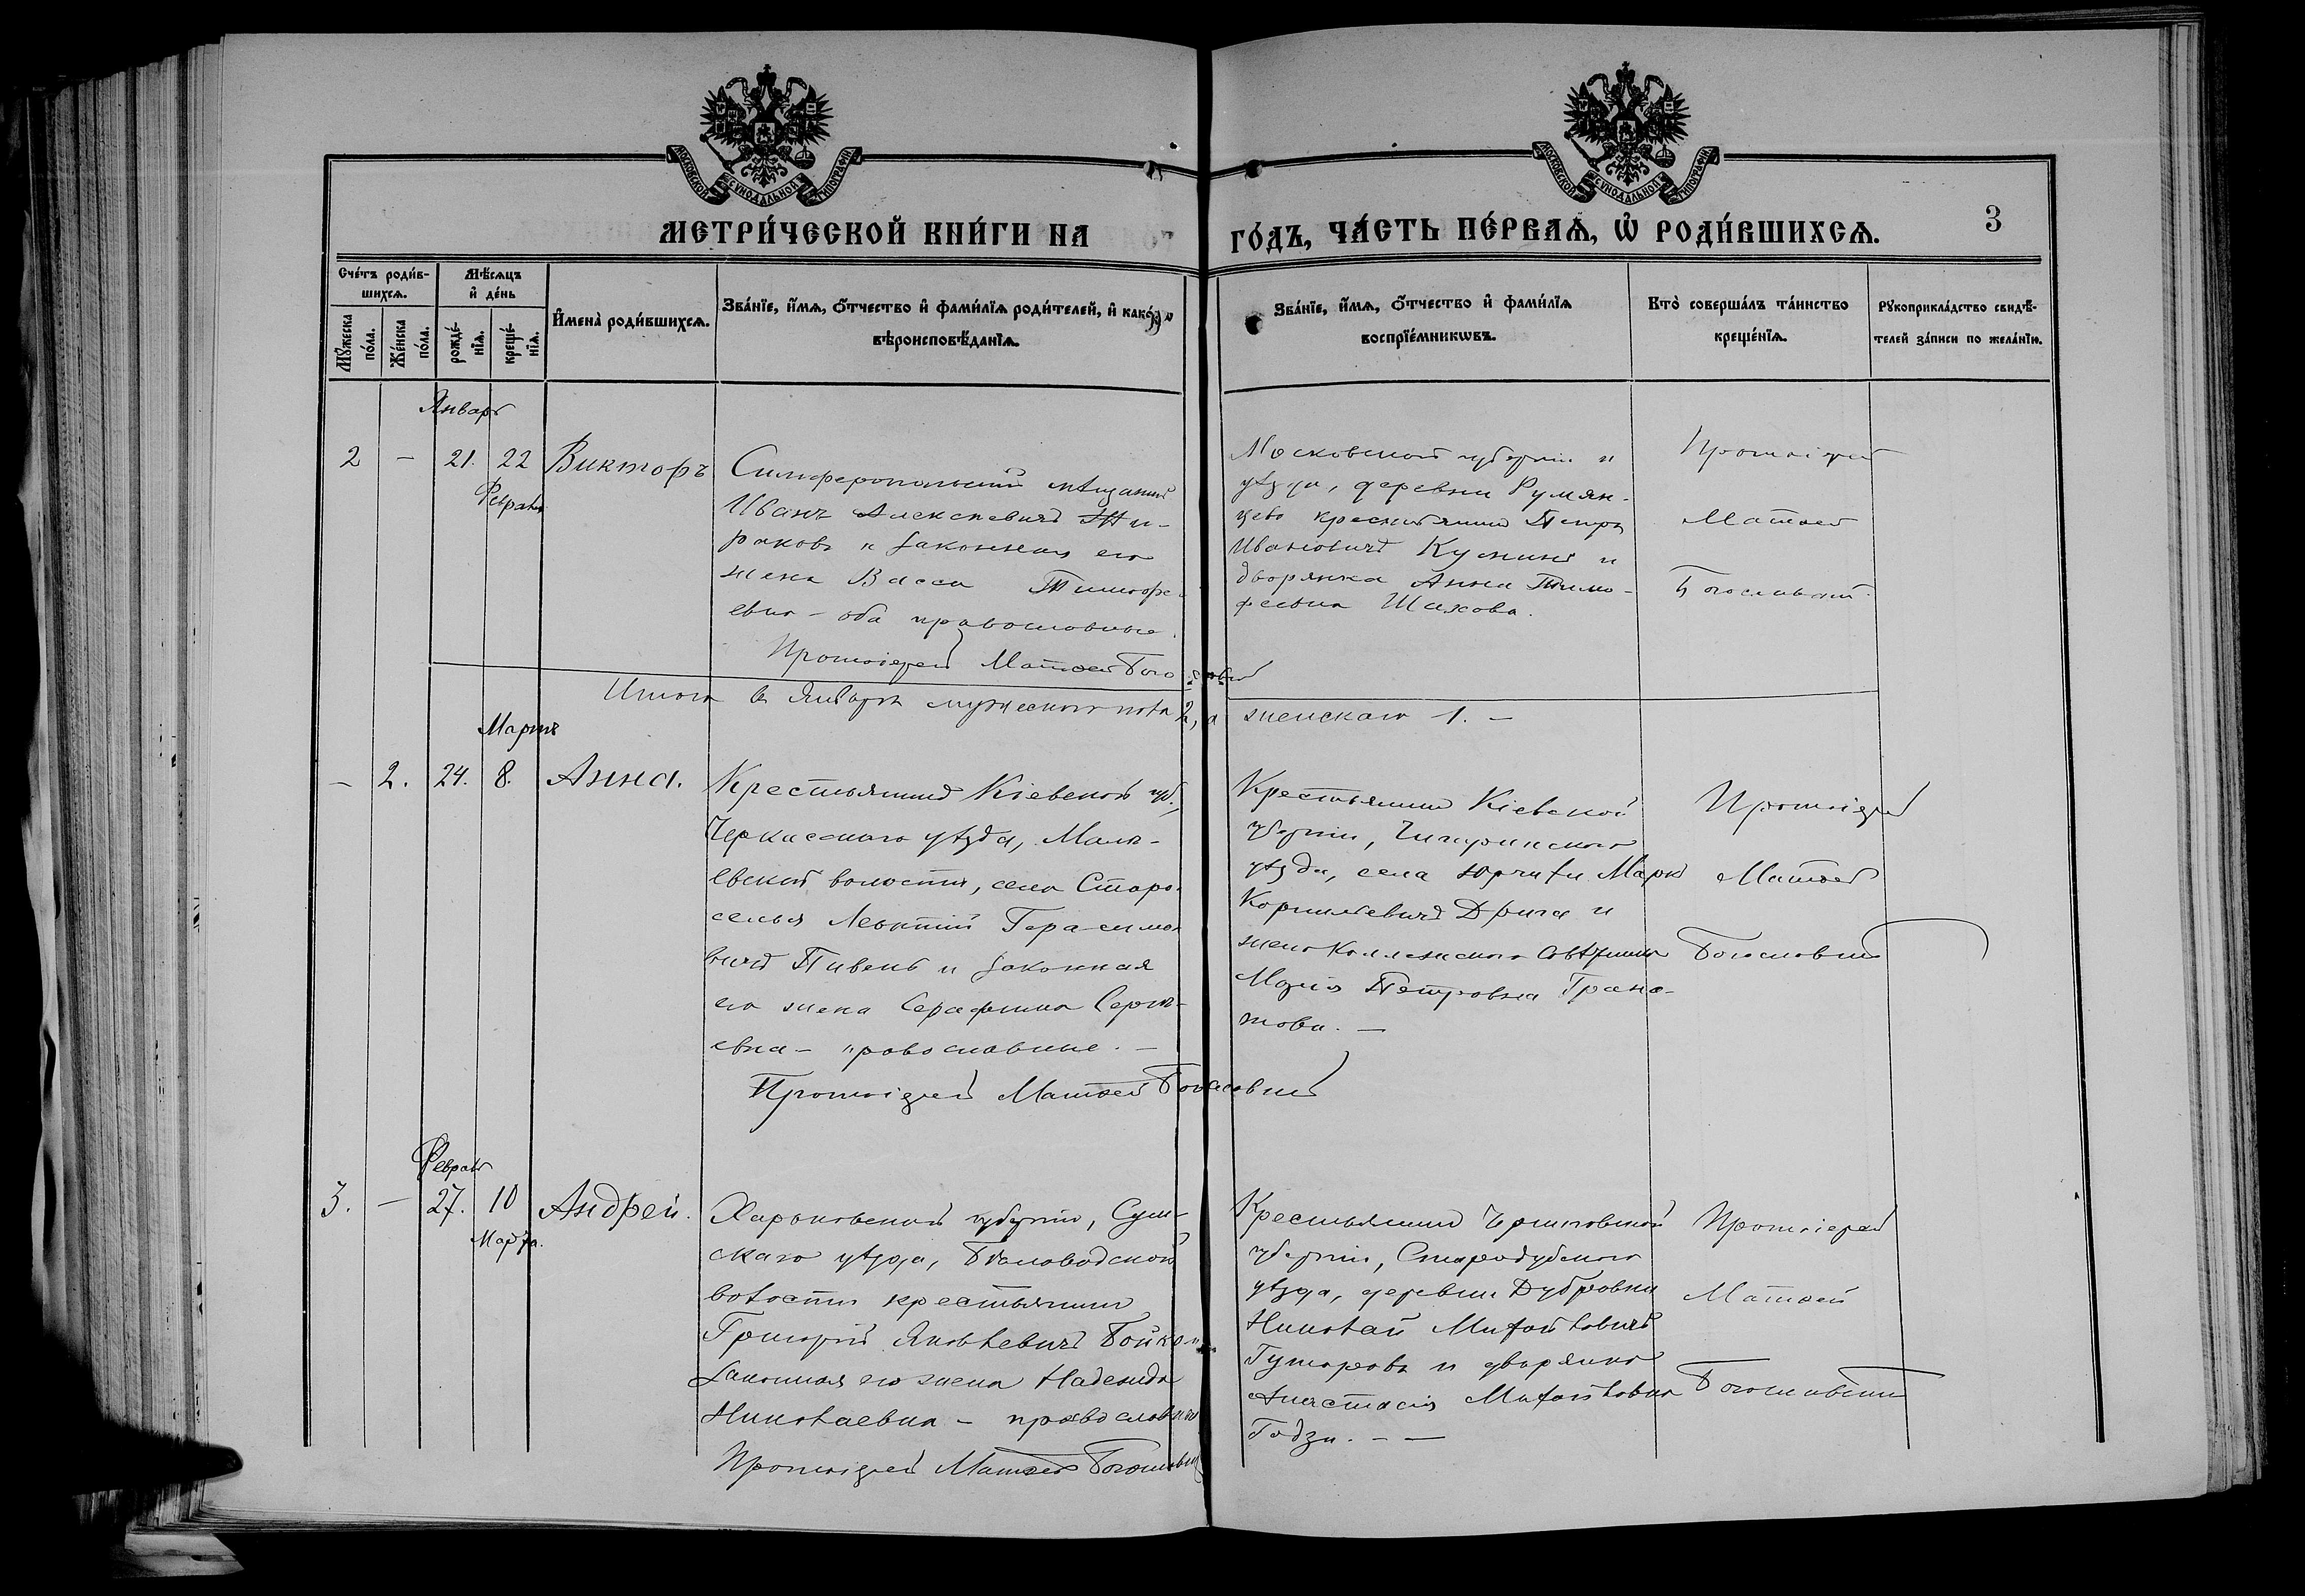 МОСКОВСКОЙ СУНОДАЛЬНОЙ ТИПОГРАФІИ
МОСКОВСКОЙ СУНОДАЛЬНОЙ ТИПОГРАФІИ
МЕТРИ́ЧЕСКОЙ КНИ́ГИ НА
ГО́ДЪ, ЧА́СТЬ ПЕ́РВАѦ, Ѡ҆ РОДИ́ВШИХСѦ.
3
Сче́тъ роди́в-
шихсѧ.
Мꙋ́жеска по́ла.
Же́нска по́ла.
Мѣ́сѧцъ
и҆ де́нь
рожде́-
нїѧ.
креще́-
нїѧ.
И҆мена̀ роди́вшихсѧ.
Зва́нїе, и҆́мѧ, ѻ҆́тчество и҆ фами́лїѧ роди́телей, и҆ како́гѡ
вѣроисповѣ́данїѧ.
Зва́нїе, и҆́мѧ, ѻ҆́тчество и҆ фами́лїѧ
воспрїе́мникѡвъ.
Кто̀ соверша́лъ та́инство
креще́нїѧ.
Рꙋкоприкла́дство свидѣ́-
телей за́писи по жела́нїю.
Январь
2 – 21. 22 Викторъ
Февраль
Симферопольскій мѣщанинъ
Иванъ Алексеевичъ
и законная его
жена Васса Тимофе-
евна – оба православные.
Протоіерей Матѳей Богословскій
Московской губерніи и
уѣзда, деревни Румян-
цево крестьянинъ Петръ
Ивановичъ и
дворянка Анна Тимо-
феевна Шахова.
Протоіерей
Матѳей
Богословскій
Итого въ Январѣ мужескаго пола 2, а женскаго 1. –
Мартъ
– 2. 24. 8. Анна.
Крестьянинъ Кіевской губ.,
Черкасскаго уѣзда,
евской волости, села Старо-
селья Леонтій Герасимо-
вичъ Пивень и законная
его жена Серафима Серге-
евна – православные. –
Протоіерей Матѳей Богословскій
Крестьянинъ Кіевской
губерніи, Чигиринскаго
уѣзда, села Маркъ
Корнилевичъ Дрига и
жена Коллежскаго Совѣтника
Марія Петровна Грана-
това. –
Протоіерей
Матѳей
Богословскій
Февраль
3. – 27. 10 Андрей.
Марта.
Харьковской губерніи, Сум-
скаго уѣзда, Бѣловодской
волости крестьянинъ
Григорій Яковлевичъ Бойко и
законная его жена Надежда
Николаевна – православные
Протоіерей Матѳей Богословскій
Крестьянинъ Черниговской
губерніи, Стародубскаго
уѣзда, деревни Дубровки
Николай Михайловичъ
и дворянка
Анастасія Михайловна
Годзи. – –
Протоіерей
Матѳей
Богословскій